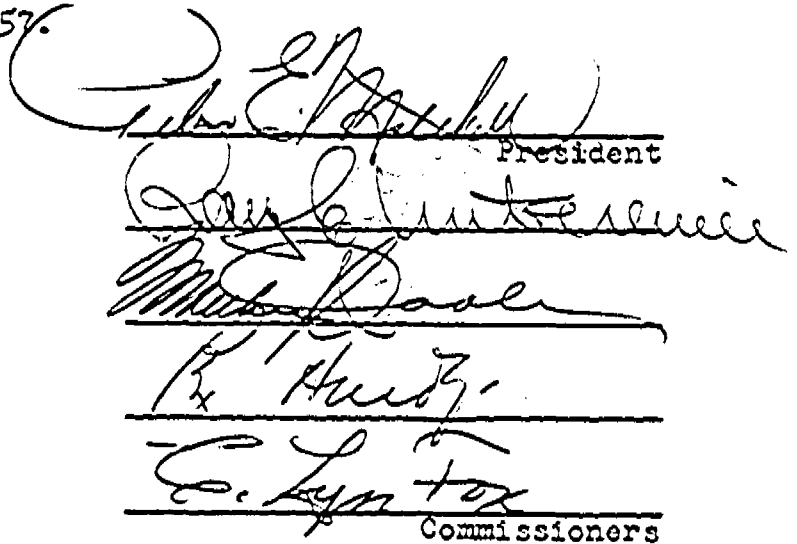 57.
Peter E. Mitchell
President
Ray C. Untereiner
Matthew J. Dooley
Rex Hardy
C. Lyn Fox
Commissioners